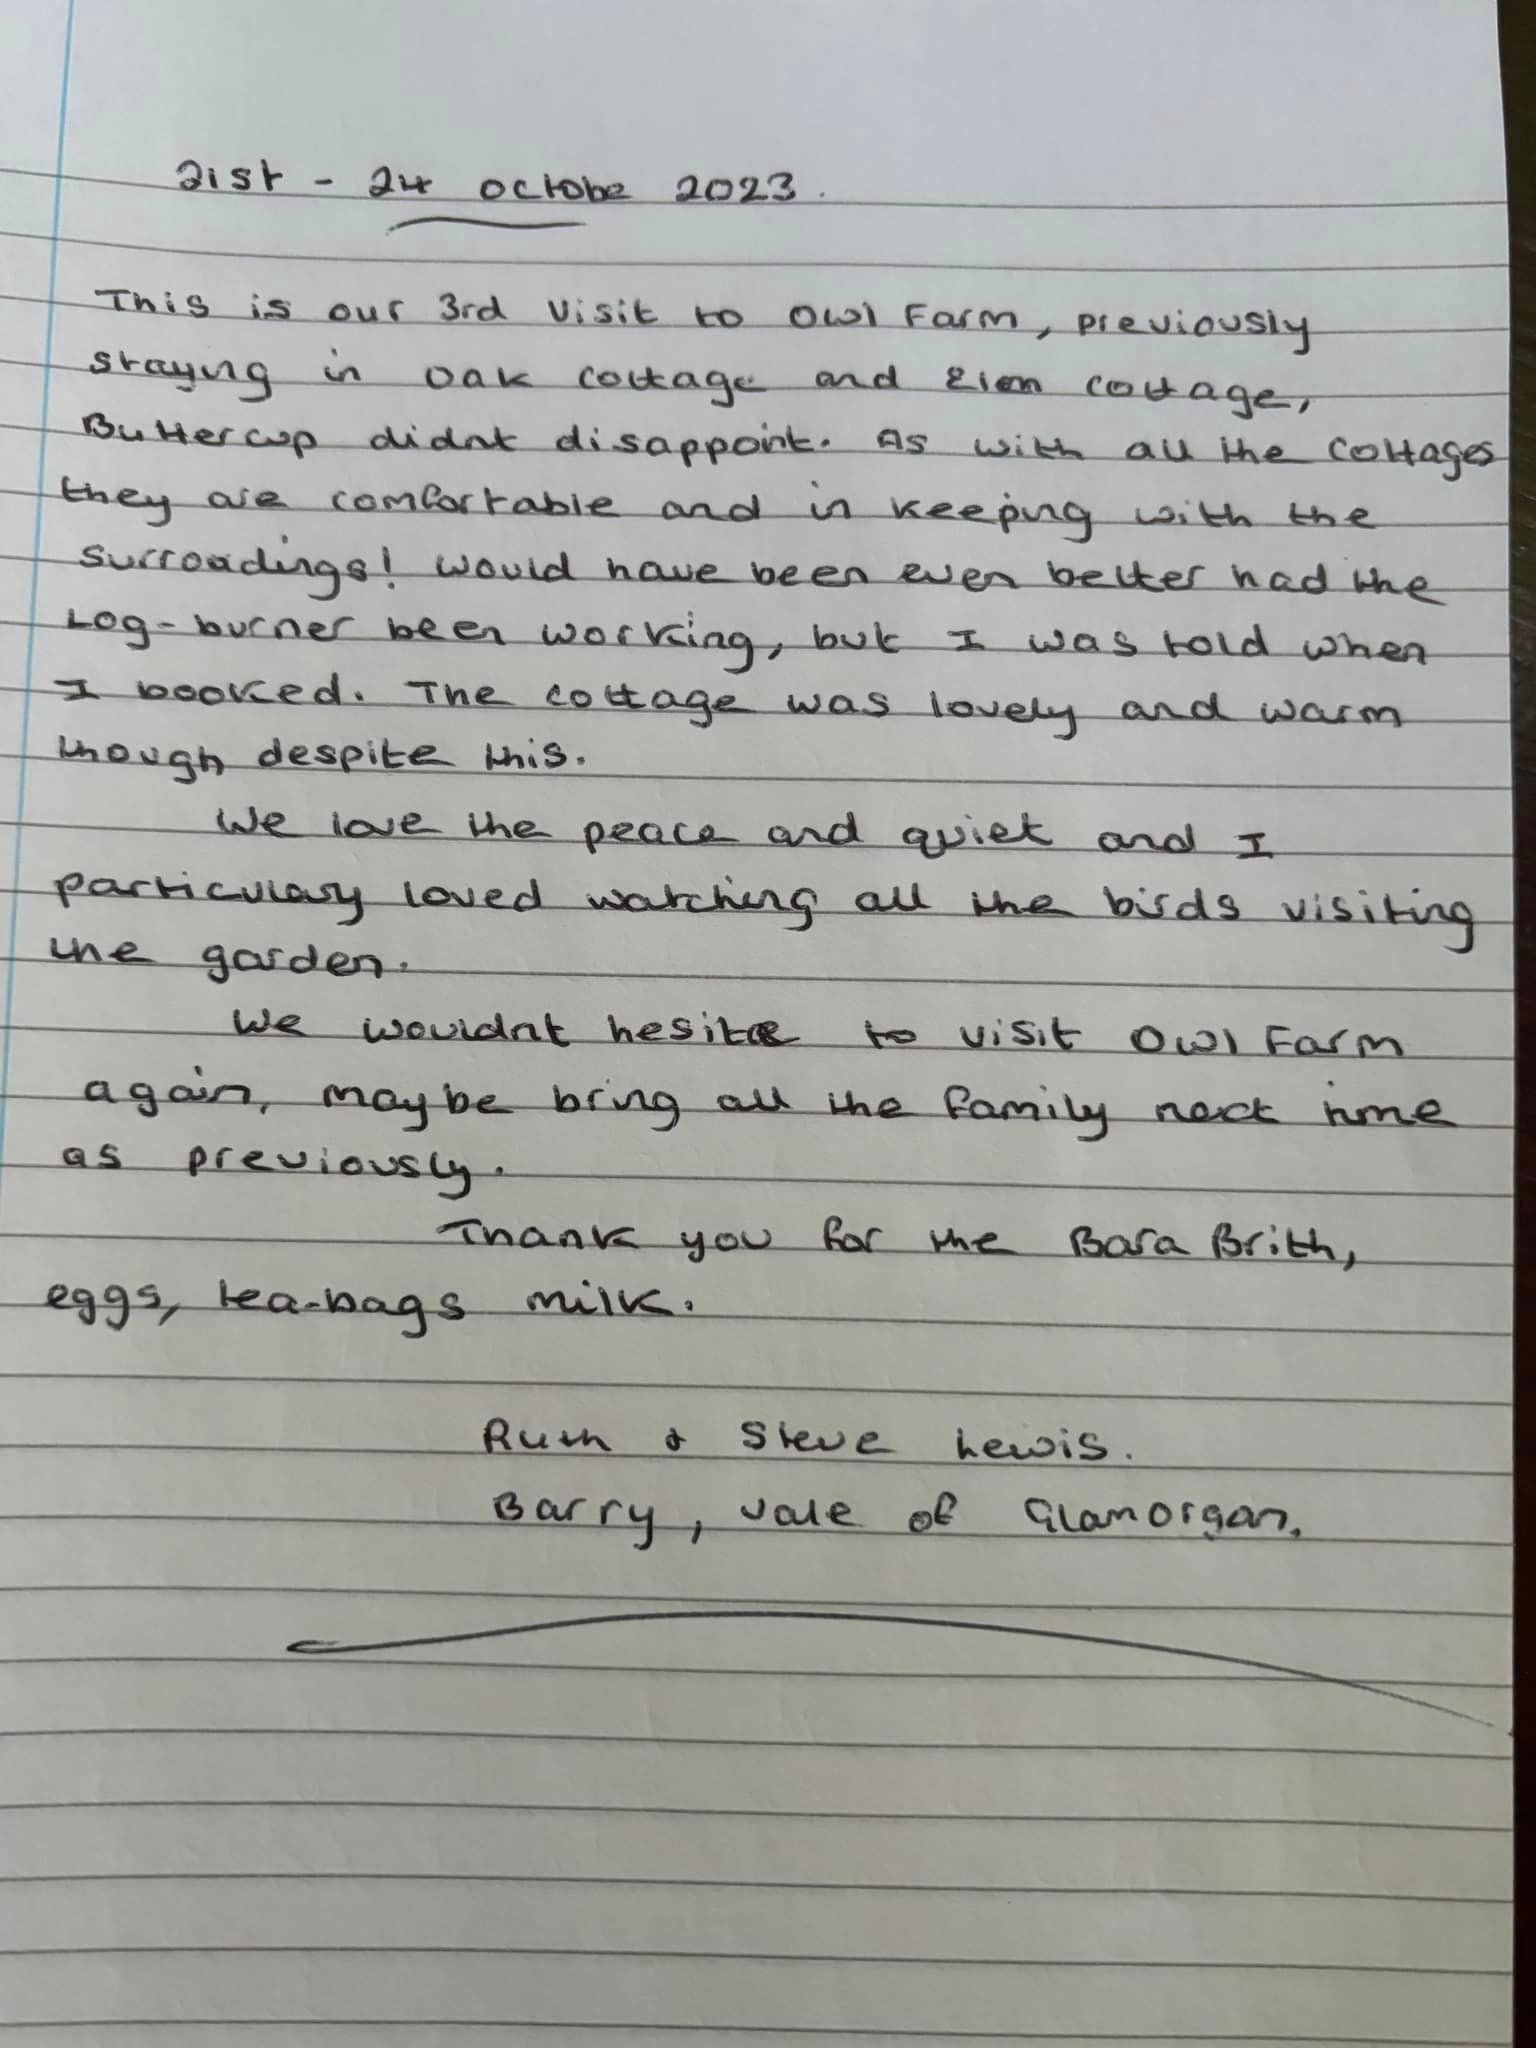 21st - 24 Octobe 2023.
This is our 3rd visit to Owl Farm, previously
staying in Oak Cottage and Elem Cottage,
Buttercup didnt disappoint. As with all the cottages
they are comfortable and in keeping with the
surroadings! Would have been even better had the
Log-burner been working, but I was told when
I booked. The cottage was lovely and warm
though despite this.
We love the peace and quiet and I
particulary loved watching all the birds visiting
the garden.
We wouldnt hesitae to visit Owl Farm
again, maybe bring all the family next time
as previously.
Thank you for the Bara Brith,
eggs, tea-bags milk.
Ruth & Steve Lewis.
Barry, Vale of Glamorgan.